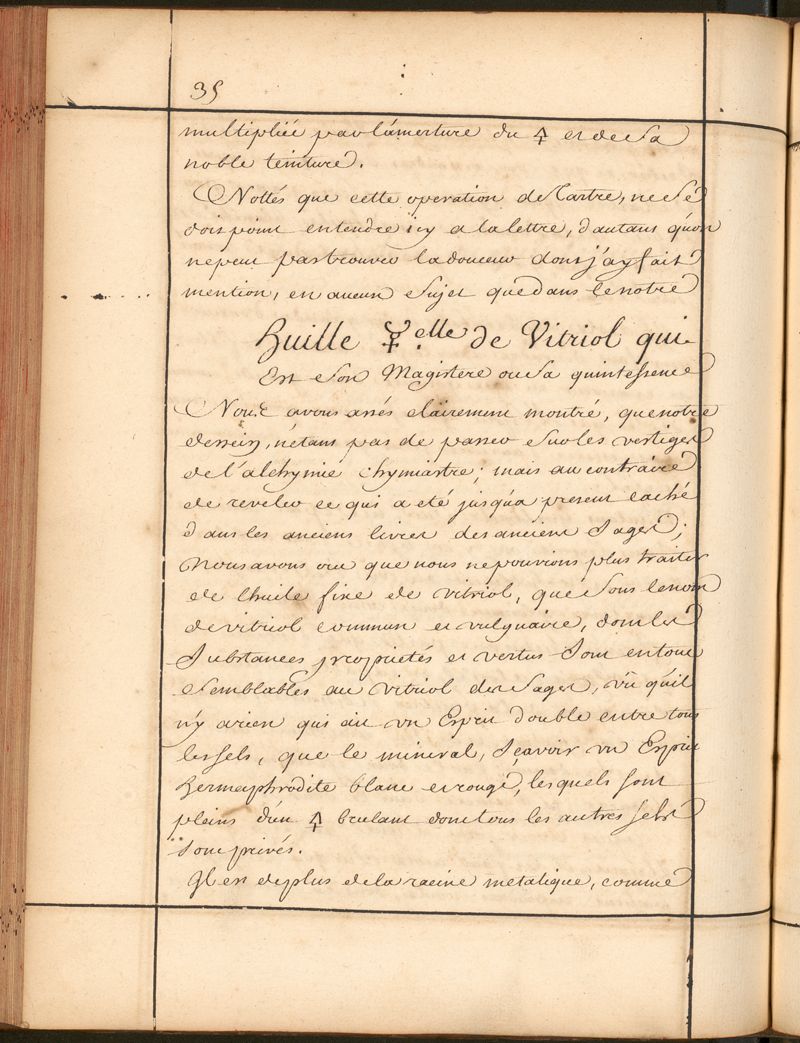 35
multipliée par lámerture du 🜍 et de Sa
noble teinture.
Nottés que cette operation de Tartre, ne Se
doit point entendre icy a la lettre, dautant qúon
ne peut pas trouver la douceur dont j'ay fait
mention, en aucun Sujet que dans le notre
Huille ☿elle de Vitriol qui
Est Son Magistere ou Sa quintessence
Nous avons assés clairement montré, que notre
dessein, nétant pas de passer Sur les vertiges
de l'alchymie chymiastre; mais au contraire
de reveler ce qui a eté jusqúa present caché
dans les anciens livres des anciens Sages;
Nous avons cru que nous ne pouvions plus traiter
de lhuile fixe de vitriol, que Sous le nom
de vitriol commun et vulguaire, dont les
Substances proprietés et vertus Sont en tout
Semblables au vitriol des Sages, vû qúil
n'y a rien qui ait un Esprit double entre tous
les sels, que le mineral, Sçavoir un Esprit
Hermaphrodite blanc et rouge, lesquels sont
pleins dún 🜍 brulant dont tous les autres sels
Sont privés.
Il est de plus de la racine metalique, comme